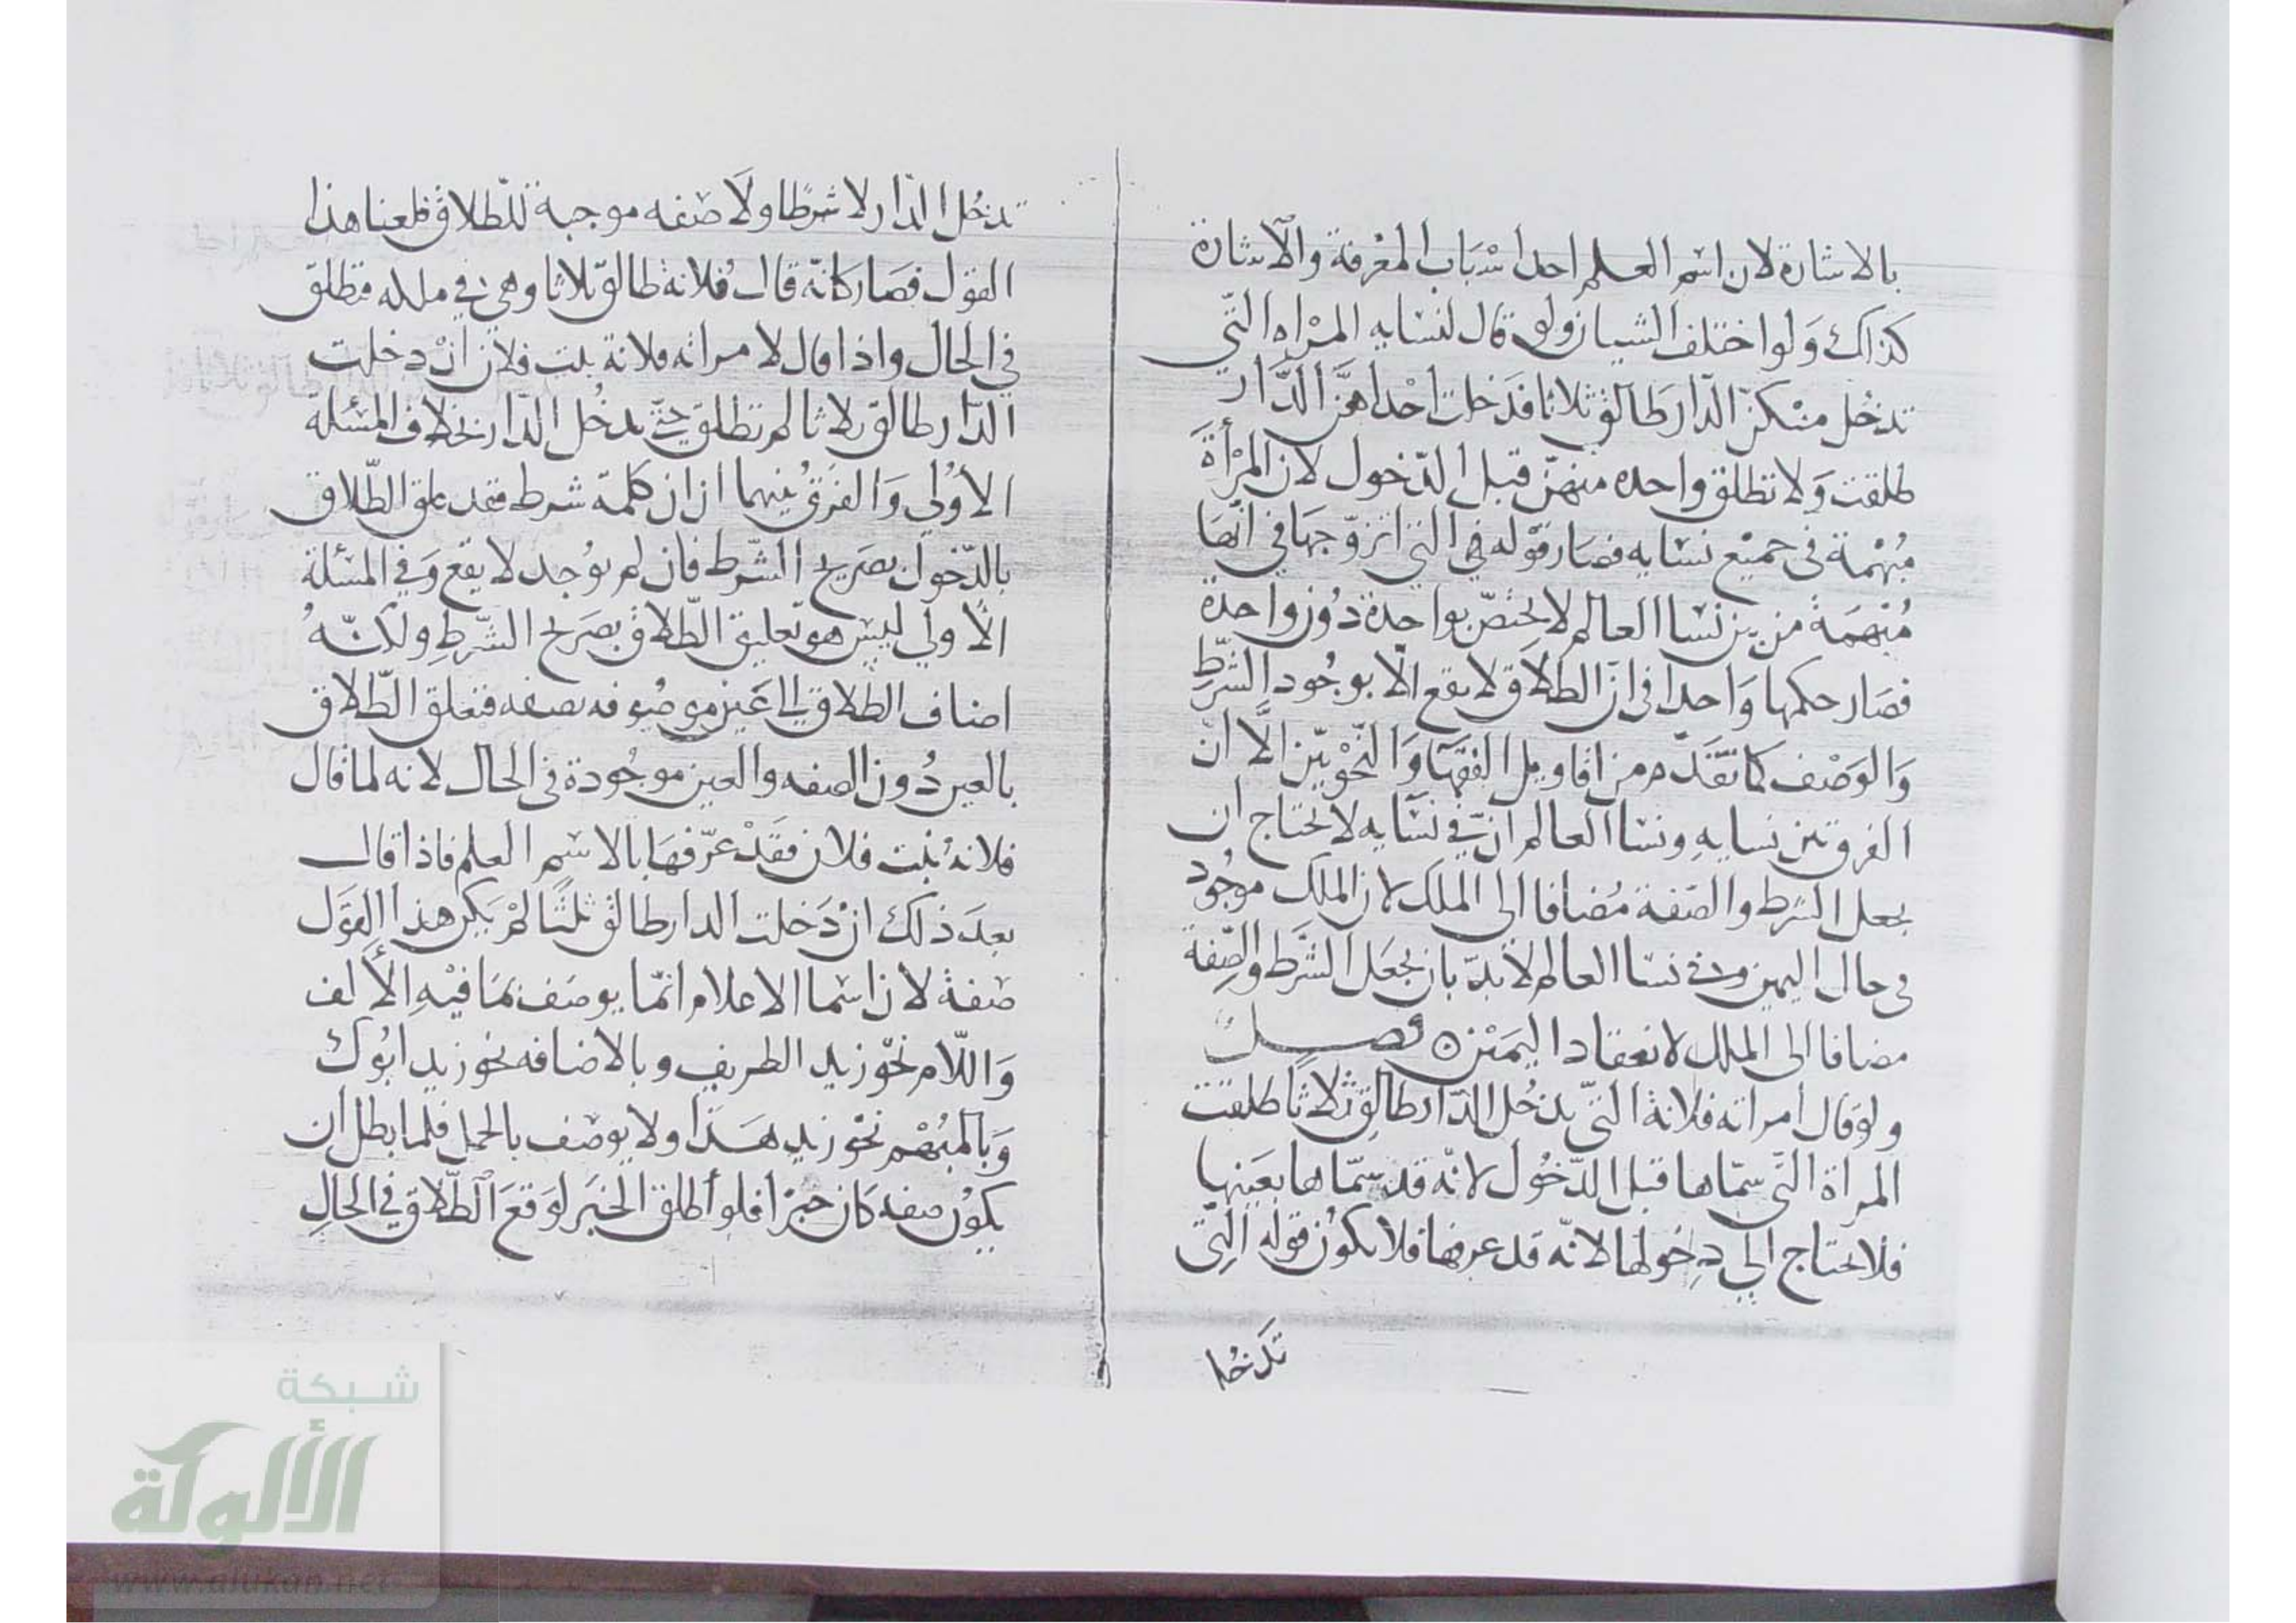 بالاشارة لان اسم العلم احد اسْبَاب المعْرفة والاشارة
كذاك وَلو اختلف الشيبان ولو قال لنسايه المرْاه التي
تدخُل منْكنّ الدّار طَالق ثلاثا فدَخلت احْداهنّ الدّار
طلقت وَلا تطلق واحده منهنّ قبل الدّخول لان المرْأة
مُبْهمة فى جميْع نسَايه فصَار قوْله في التى اتزوّجهَا في انّهَا
مُبْهمَة من بين نسَا العالم لا يختصّ بواحدة دُون واحدة
فصَار حكمها وَاحدا فى انّ الطلاق لا يقع الّا بوجُود الشّرْطِ
وَالوَصْف كما تقَدّم من اقاويل الفقهَا وَالنّحْويّين الّا انّ
الفرق بين نسايهِ ونسا العالم انّ في نسَايه لا يحتاج ان
يجعل الشرط والصّفة مُضافا الى الملك لان الملك موجُود
فى حال اليمين وفى نسَا العالم لا بدّ بان يجعَل الشَّرط والصِّفة
مضافا الى الملك لانعقاد اليمَيْن ٥ فصــل
ولوْ قال امراته فلانة التىّ تدخُل الدّار طالِق ثلاثًا طلقت
المراة التى سمّاها قبل الدّخُول لانّه قد سمّاها بعَينها
فلا يحتاج الي دِخولها لانّه قد عرفها فلا يكوُن قوله التِى
تدَخُل
تدخُل الدّار لا شرطًا ولَا صَفه موجبة للطلاق فلغنا هذا
القوْل فصَار كانّه قال فُلانة طالقٌ ثلاثا وهي في ملكه فتطلق
في الحال واذا قال لامراته فلانة بنت فلان انْ دخلت
الدّار طالق ثلاثا لم تطلق حتّى تدخُل الدّار بخلاف المسْئلة
الاوُلي وَالفرقُ بينهما ان ان كلمة شرط فقد علق الطّلاق
بالدّخول بصَريح الشّرط فان لم يوُجد لا يقع وَفي المسْئلة
الأولي ليسَ هو تعليق الطّلاق بصَريح الشّرطِ ولكنّهُ
اضاف الطلاق الى عَين موصُوفه بصفه فتعلق الطّلاق
بالعين دُون الصفه والعين موجُودة فى الحال لانه لما قال
فلانهُ بنت فلان فقَدْ عرّفهَا بالاسْم العلم فاذا قال
بعدَ ذلك انْ دَخلت الدار طالق ثلثًا لمْ يَكن هذا القوَل
صَفة لان اسْما الاعلام انمّا يوصَف بمَا فيْهِ الألف
وَاللّام نحْو زيد الظريف وبالاضافه نحو زيد ابوُك
وَبالمُبهَم نحْو زيد هَـذا ولا يوصَف بالجمل فلما بطل ان
يكوُن صفه كان خبرًا فلو أطلق الخبَر لوَقعَ الطّلاق في الحالِ
شبكة
الألوكة
www.alukah.net